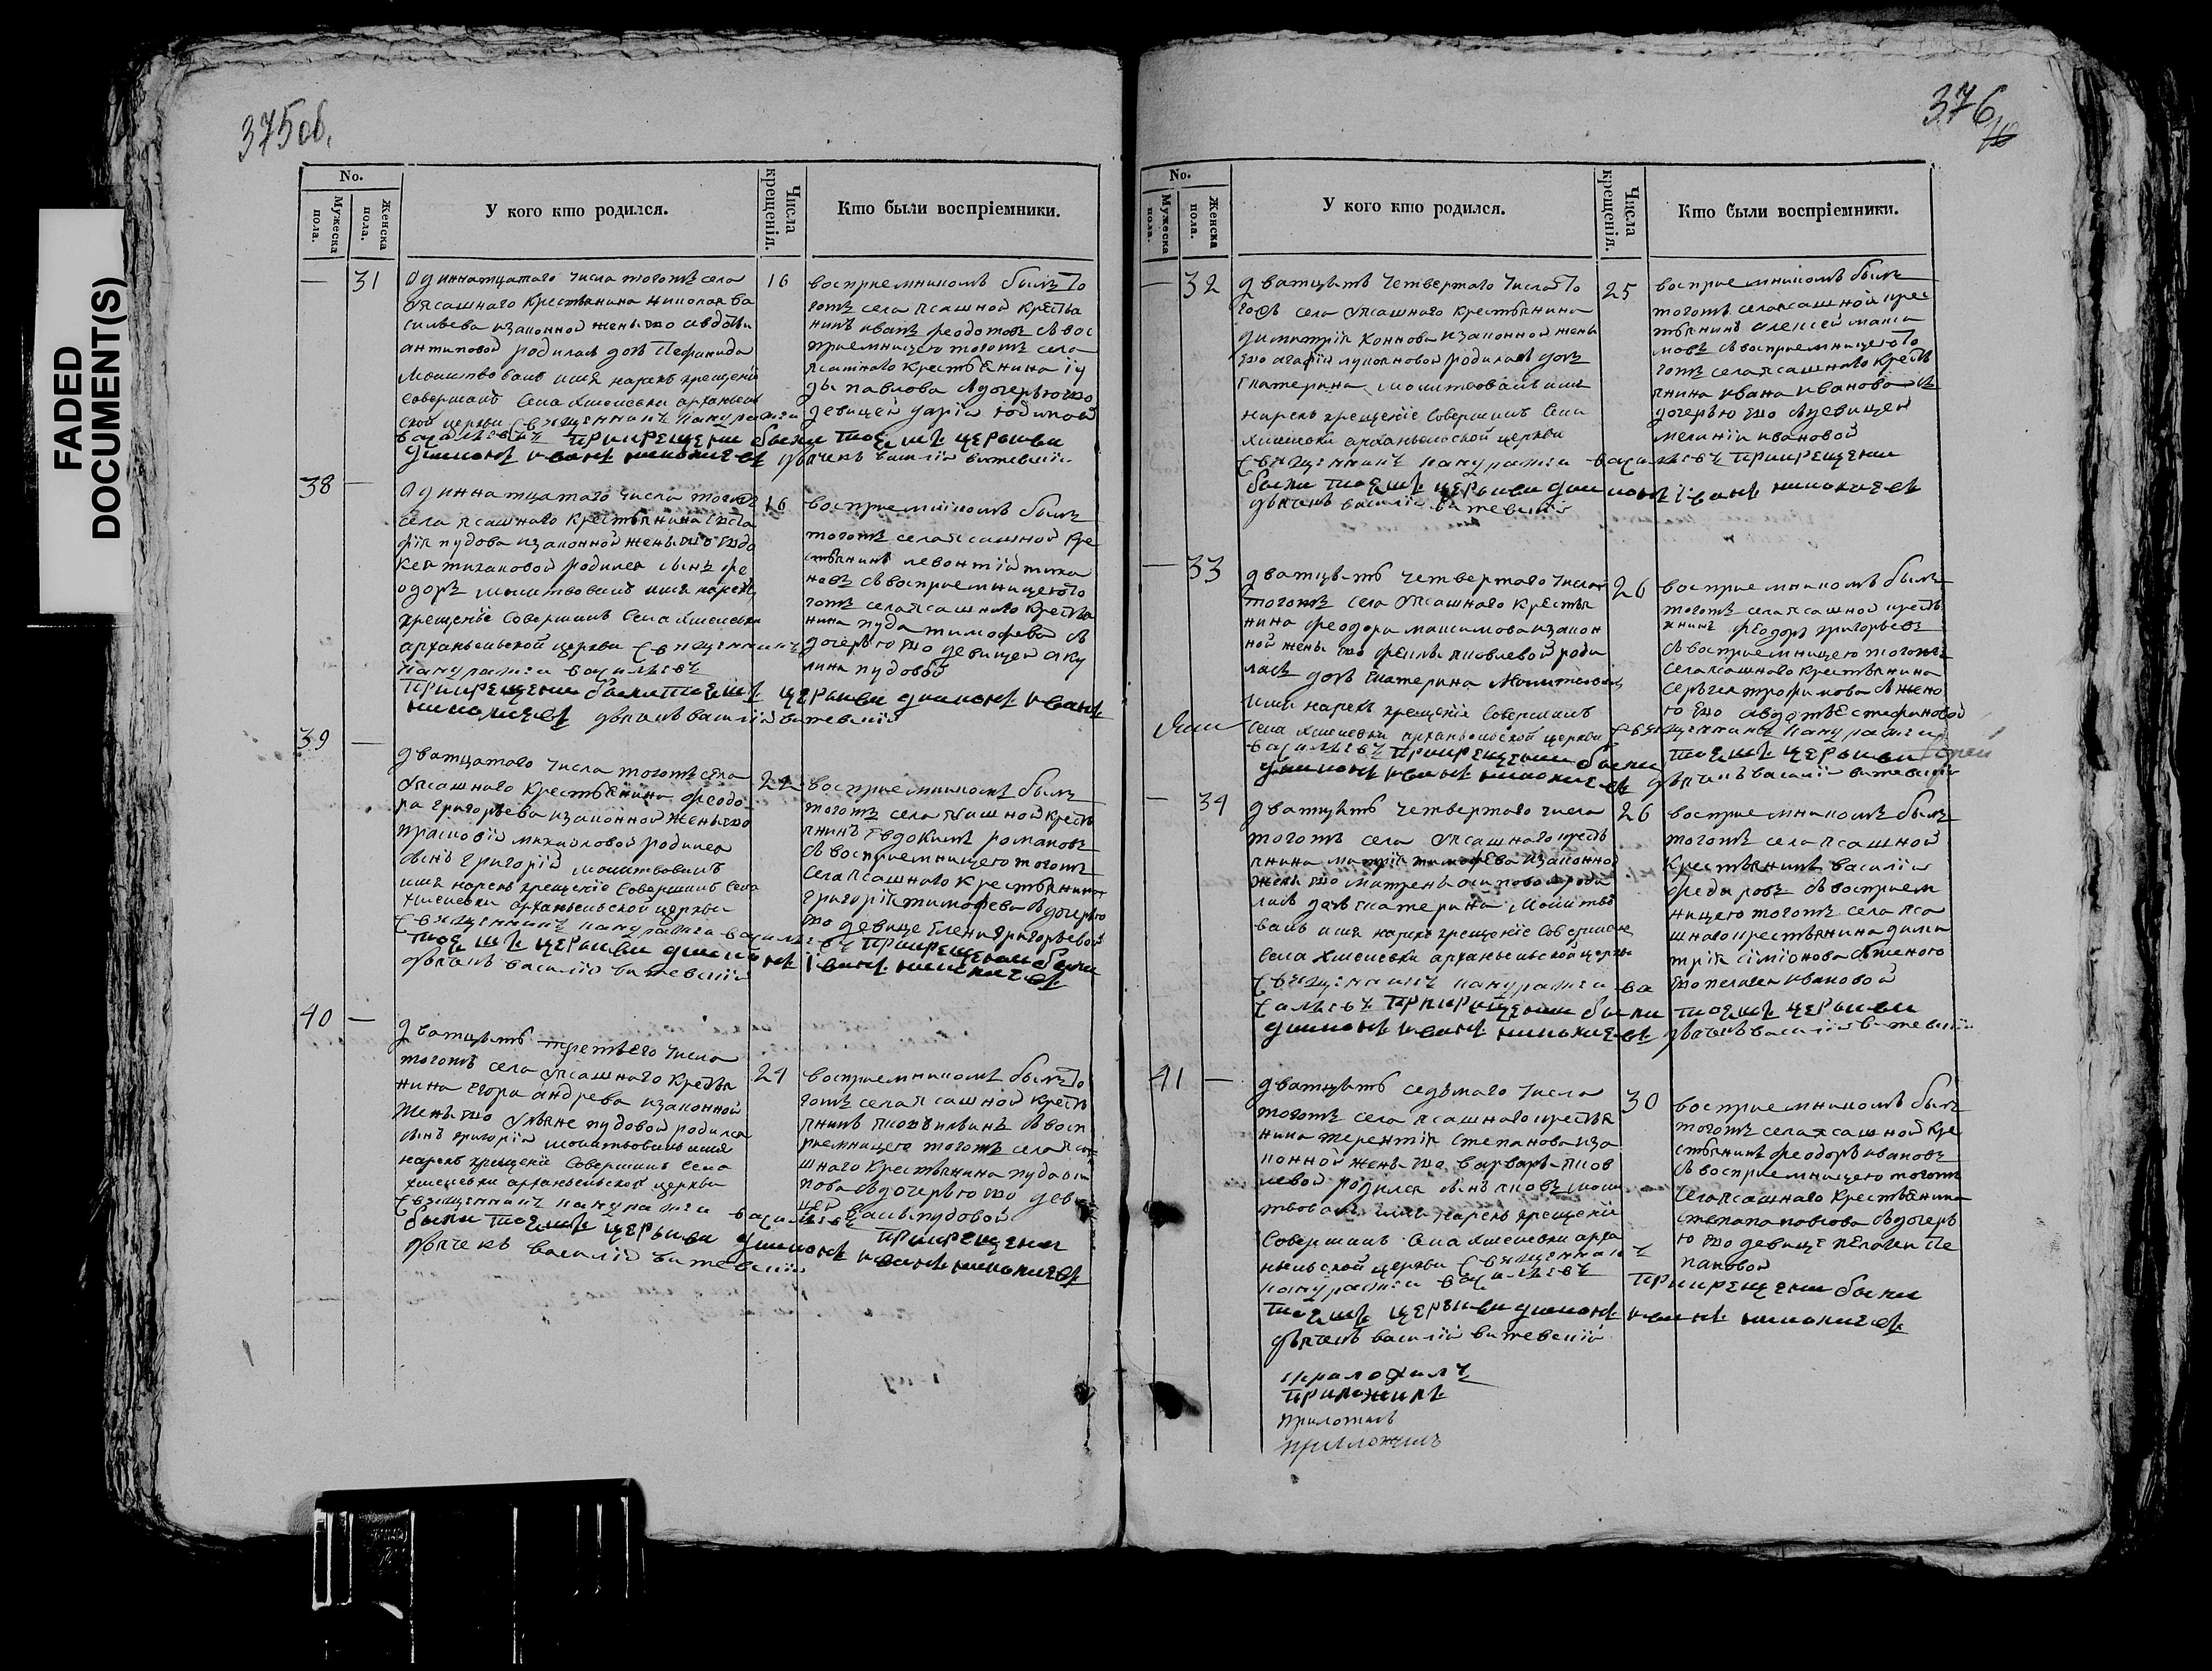 FADED
DOCUMENT(S)
375об.
No.
Мужеска пола.
Женска пола.
У кого кто родился.
Числа крещенія.
Кто были воспріемники.
— 31
Одиннатцатаго числа тогожъ села
Ясашнаго крестьянина николая ва
сильева изаконной жены его авдотьи
антиповой родилась дочь
молитвовалъ имя нарекъ крещеніе
совершалъ села архангель
ской церкви священникъ
васильевъ при крещеніи были тоежъ церькви
диаконъ иванъ николаевъ дьячекъ василій витевскій
16
восприемникомъ былъ То
гожъ села ясашной крестья
нинъ иванъ феодотовъ съ вос
приемницею тогожъ села
ясашнаго крестьянина
павлова дочерью его
девицей
38 —
Одиннатцатаго числа тогожъ
села ясашнаго крестьянина
пудова изаконной жены его
родился сынъ фе
одоръ молитвовалъ имя нарекъ
крещеніе совершалъ села
архангельской церкви священникъ
васильевъ
при крещеніи были тоежъ церькви диаконъ иванъ
николаевъ дьячекъ василій витевскій
16
восприемникомъ былъ
тогожъ села ясашной кре
стьянинъ левонтій
съ восприемницею То
гожъ села ясашнаго крестья
нина пуда тимофеева съ
дочерью его девицей аку
лина пудовой
39 —
дватцатаго числа тогожъ села
Ясашнаго крестьянина феодо
ра григорьева изаконной жены его
михайловой родился
сынъ григорій молитвовалъ
имя нарекъ крещеніе совершалъ села
архангельской церкви
священникъ васильевъ при крещеніи были
тоежъ церькви диаконъ иванъ николаевъ
дьячекъ василій витевскій
22
восприемникомъ былъ
тогожъ села ясашной кресть
янинъ Евдокимъ романовъ
съ восприемницею тогожъ
села ясашнаго крестьянина
григорія тимофеева съ дочерью
его девице Елени григорьевой
40 —
дватцать третьего числа
тогожъ села Ясашнаго крестья
нина егора андреева изаконной
жены его пудовой родился
сынъ григорій молитвовалъ имя
нарекъ крещеніе совершалъ села
архангельской церкви
священникъ васильевъ при крещеніи
были тоежъ церькви диаконъ иванъ николаевъ
дьячекъ василій витевскій
24
восприемникомъ былъ То
гожъ села ясашной кресть
янинъ съ восп
риемницею тогожъ села яса
шнаго крестьянина пуда
съ дочерью его деви
цей пудовой
376
No.
Мужеска пола.
Женска пола.
У кого кто родился.
Числа крещенія.
Кто были воспріемники.
— 32
дватцать четвертаго числа То
гожъ села Ясашнаго крестьянина
димитрія изаконной жены
его агафіи лукояновой родилась дочь
Екатерина молитвовалъ имя
нарекъ крещеніе совершалъ села
архангельской церкви
священникъ васильевъ при крещеніи
были тоежъ церькви диаконъ іванъ николаевъ
дьячекъ василій витевскій
25
восприемникомъ былъ
тогожъ села ясашной крес
тьянинъ алексей макси
мовъ съ восприемницею То
гожъ села ясашнаго кресть
янина ивана иванова съ
дочерью его девицей
меланіи ивановой
— 33
дватцать четвертаго числа
тогожъ села Ясашнаго крестья
нина феодора максимова изакон
ной жены его яковлевой роди
лась дочь екатерина молитвовалъ
имя нарекъ крещеніе совершалъ
села архангельской церкви священникъ
васильевъ при крещеніи были тоежъ церькви
диаконъ иванъ николаевъ дьячекъ василій витевскій
26
восприемникомъ былъ
тогожъ села ясашной кресть
янинъ феодоръ григорьевъ
съ восприемницею тогожъ
села ясашнаго крестьянина
сергея трофимова съ жено
ю его авдотье стефановой
— 34
дватцать четвертаго числа
тогожъ села Ясашнаго кресть
янина тимофеева изаконной
жены его матрены осиповой роди
лась дочь екатерина молитво
валъ имя нарекъ крещеніе совершалъ
села архангельской церкви
священникъ ва
сильевъ при крещеніи были тоежъ церькви
диаконъ иванъ николаевъ дьячекъ василій витевскій
26
восприемникомъ былъ
тогожъ села ясашной
крестьянинъ василій
федоровъ съ восприем
ницею тогожъ села яса
шнаго крестьянина дими
трія симіонова съ женою
его ивановой
41 —
дватцать седьмаго числа
тогожъ села ясашнаго крестья
нина терентія степанова иза
конной жены его варвары яков
левой родился сынъ яковъ моли
твовалъ имя нарекъ крещеніе
совершалъ села арха
нгельской церкви священникъ
васильевъ при крещеніи были
тоежъ церькви диаконъ иванъ николаевъ
дьячекъ василій витевскій
30
восприемникомъ былъ
тогожъ села ясашной кре
стьянинъ феодоръ ивановъ
съ восприемницею тогожъ
села ясашнаго крестьянина
степана павлова съ дочерь
ю его девице пелагеи сте
пановой
приложилъ
приложилъ
приложилъ
приложилъ